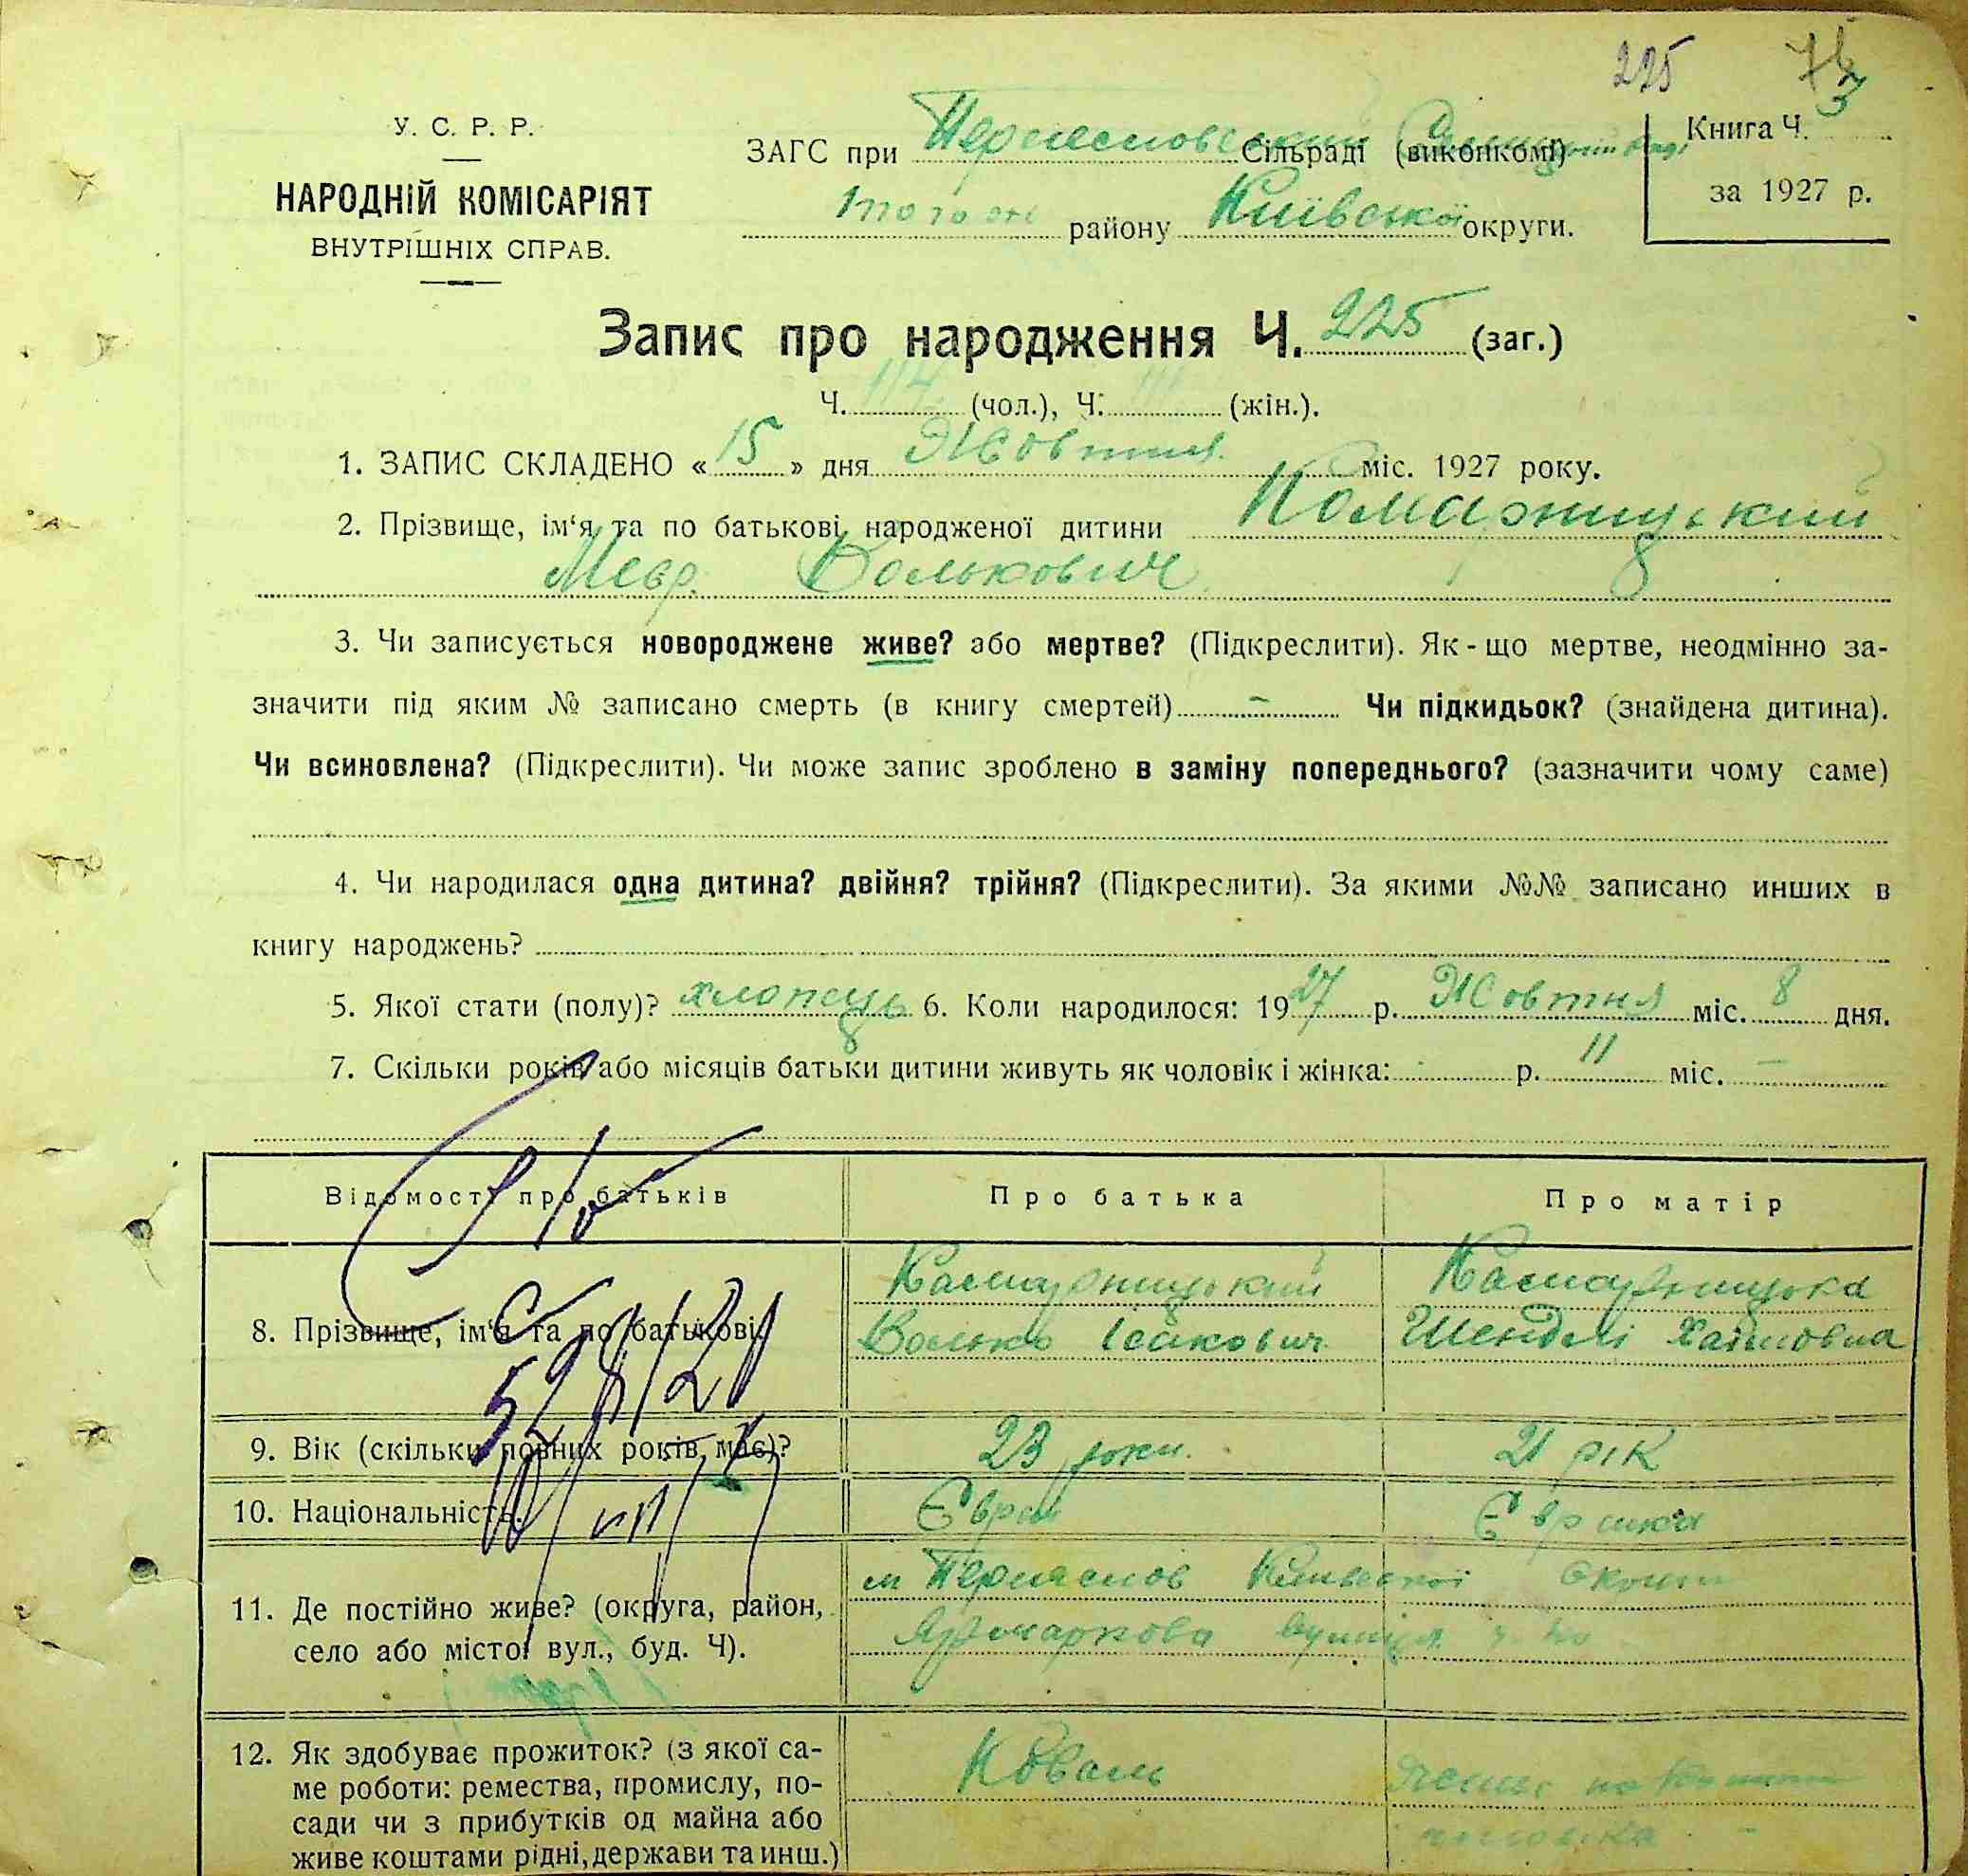 225
У. С. Р. Р.
НАРОДНІЙ КОМІСАРІЯТ
ВНУТРІШНІХ СПРАВ.
ЗАГС при Сільраді (виконкомі)
того же району Київської округи.
Книга Ч. 3
за 1927 р.
Запис про народження Ч. 225 (заг.)
Ч. 114 (чол.), Ч. (жін.).
1. ЗАПИС СКЛАДЕНО « 15 » дня Жовтня міс. 1927 року.
2. Прізвище, ім‘я та по батькові народженої дитини Комарницький
Меєр. Волькович
3. Чи записується новороджене живе? або мертве? (Підкреслити). Як-що мертве, неодмінно за-
значити під яким № записано смерть (в книгу смертей) – Чи підкидьок? (знайдена дитина).
Чи всиновлена? (Підкреслити). Чи може запис зроблено в заміну попереднього? (зазначити чому саме)
4. Чи народилася одна дитина? двійня? трійня? (Підкреслити). За якими №№ записано инших в
книгу народжень?
5. Якої стати (полу)? хлопець 6. Коли народилося: 1927 р. Жовтня міс. 8 дня.
7. Скільки років або місяців батьки дитини живуть як чоловік і жінка: - р. 11 міс. —
Відомості про батьків Про батька Про матір
8. Прізвище, ім‘я та по батькові. Камарницький Камарницька
Волько Іцікович Шендлі Хаімовна
9. Вік (скільки повних років має)? 23 роки. 21 рік
10. Національність. Єврей Єврейка
11. Де постійно живе? (округа, район,
село або місто вул., буд. Ч).
м Київської
Ярмаркова вулиця
12. Як здобуває прожиток? (з якої са-
ме роботи: ремества, промислу, по-
сади чи з прибутків од майна або
живе коштами рідні, держави та инш.)
Коваль
чоловіка